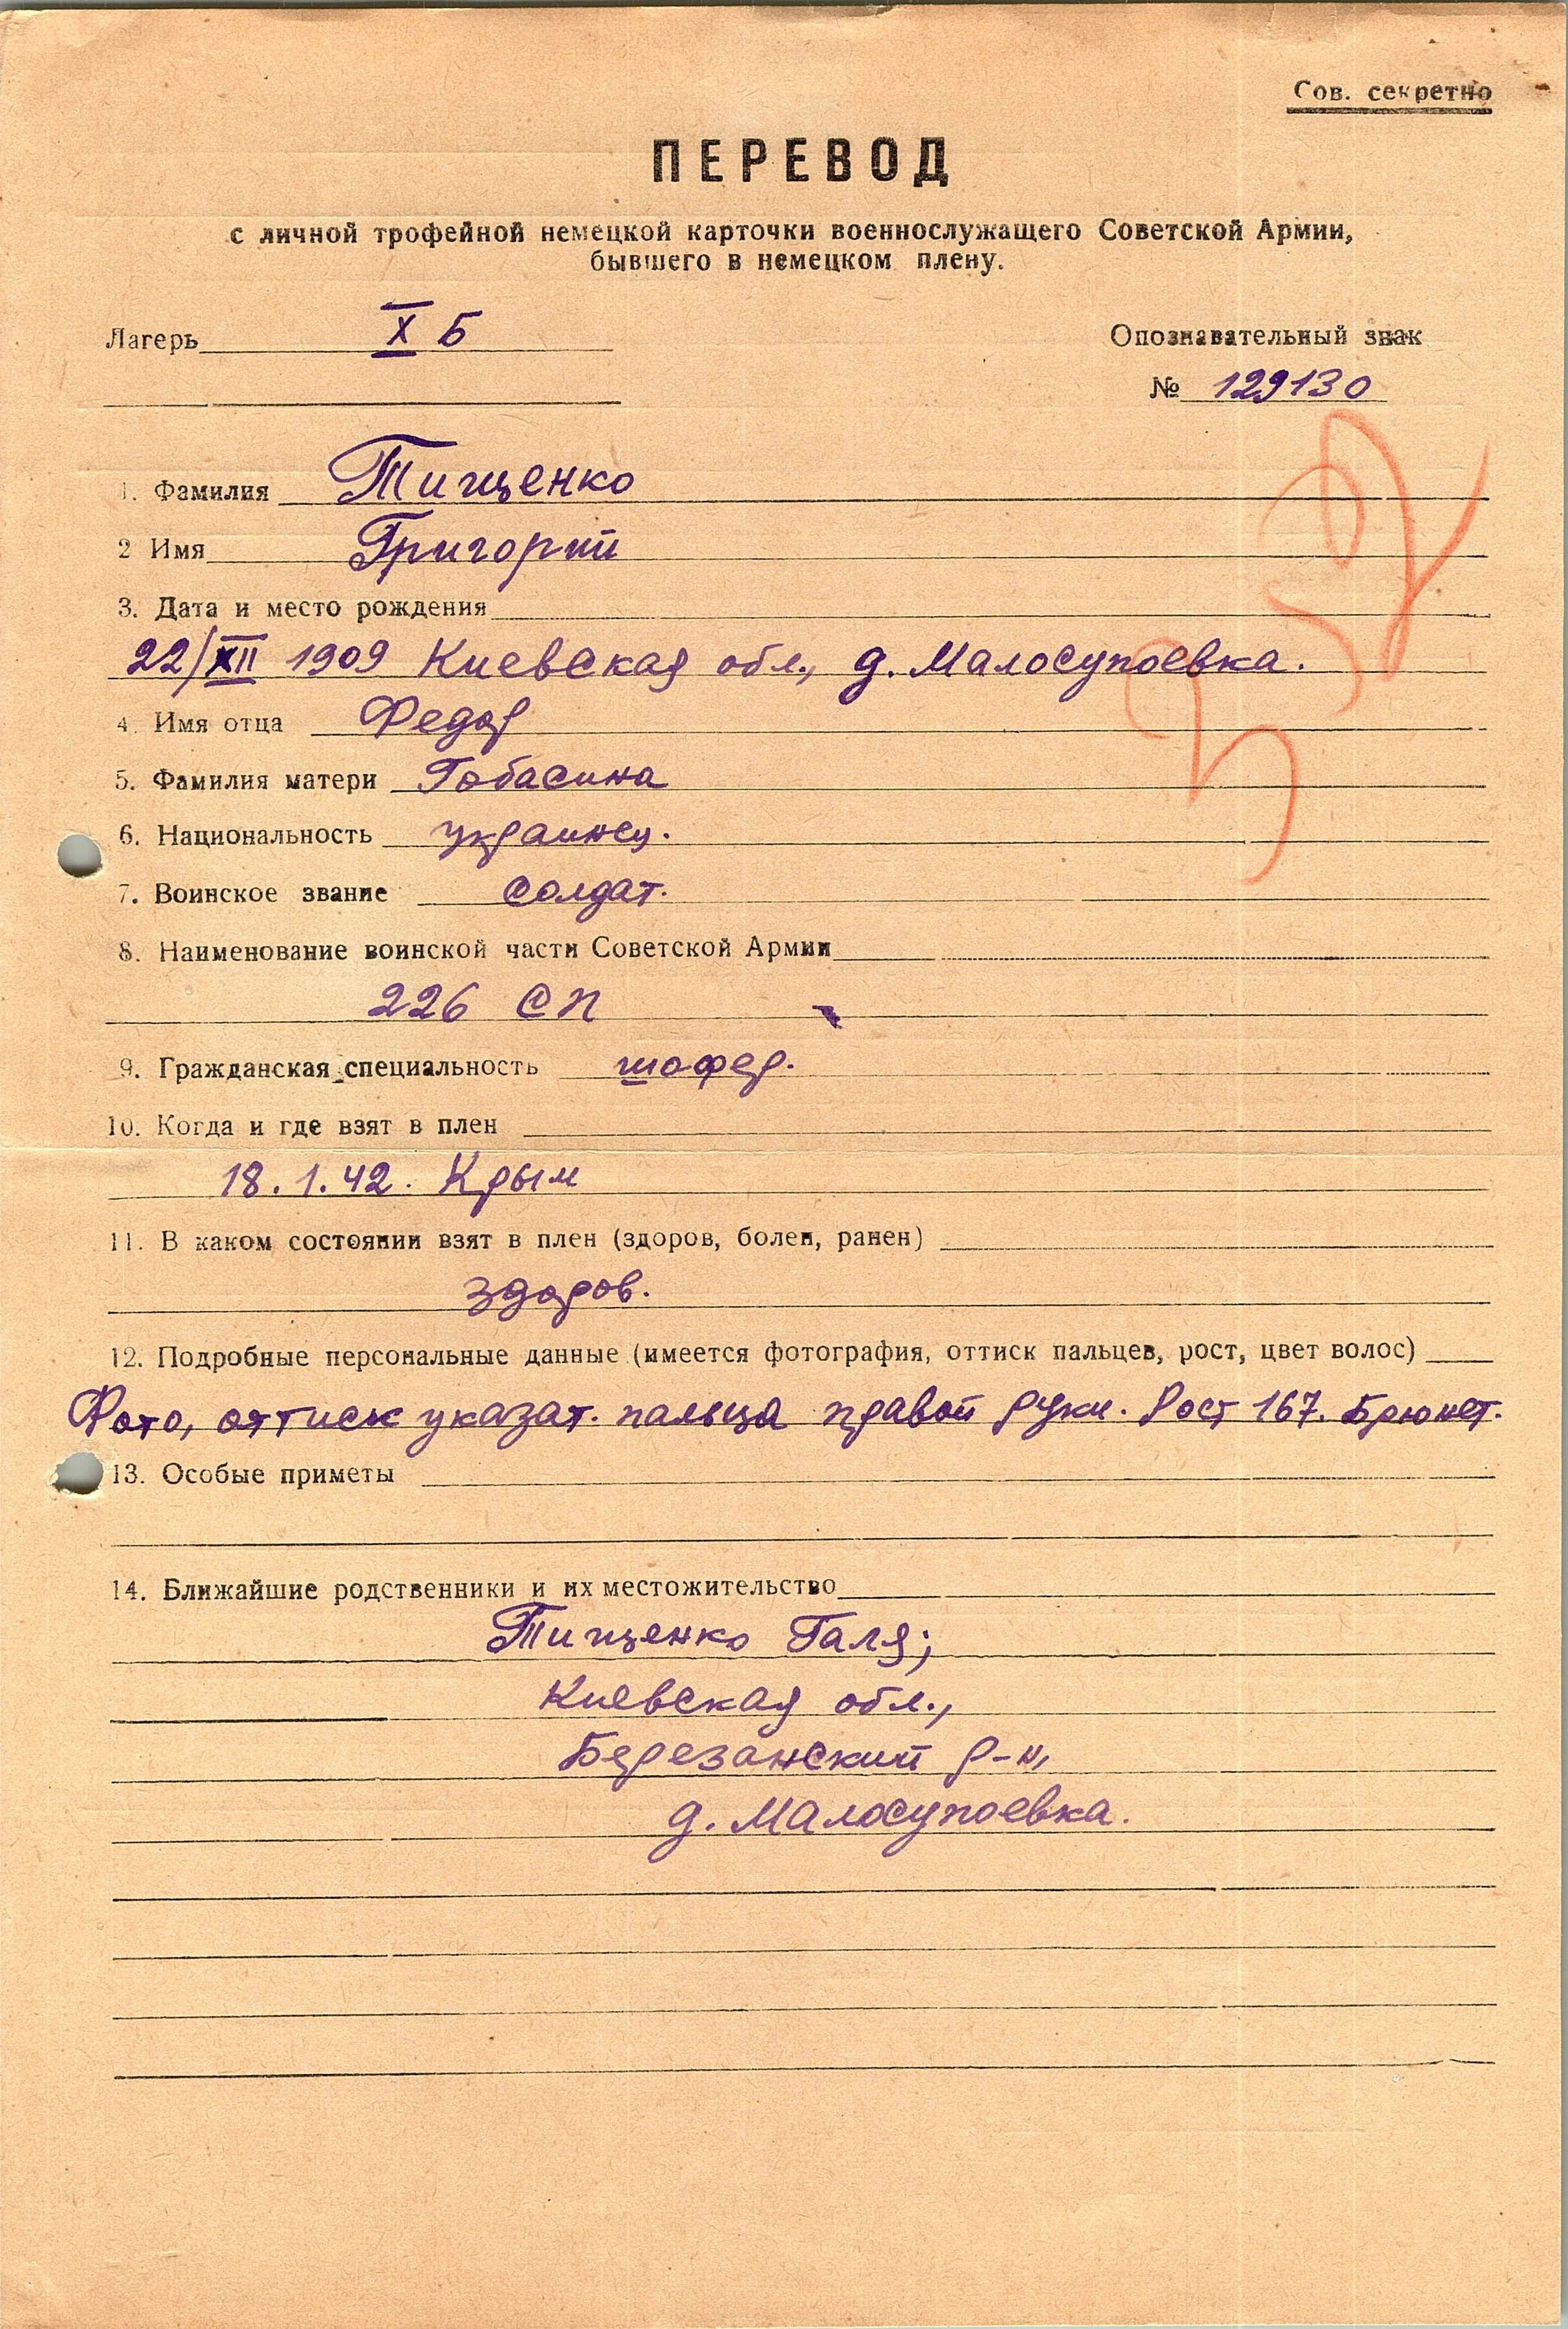 Сов. секретно
ПЕРЕВОД
с личной трофейной немецкой карточки военнослужащего Советской Армии,
бывшего в немецком плену.
Лагерь X Б
Опознавательный знак
№ 129130
1. Фамилия Тищенко
2 Имя Григорий
3. Дата и место рождения
22/XII 1909 Киевская обл., д. Малосупоевка.
4. Имя отца Федор
5. Фамилия матери Гобасина
6. Национальность украинец.
7. Воинское звание солдат.
8. Наименование воинской части Советской Армии
226 СП
9. Гражданская специальность шофер.
10. Когда и где взят в плен
18.1.42. Крым
11. В каком состоянии взят в плен (здоров, болен, ранен)
здоров.
12. Подробные персональные данные (имеется фотография, оттиск пальцев, рост, цвет волос)
Фото, оттиск указат. пальца правой руки. Рост 167. Брюнет.
13. Особые приметы
14. Ближайшие родственники и их местожительство
Тищенко Галя;
Киевская обл.,
Березанский р-н,
д. Малосупоевка.